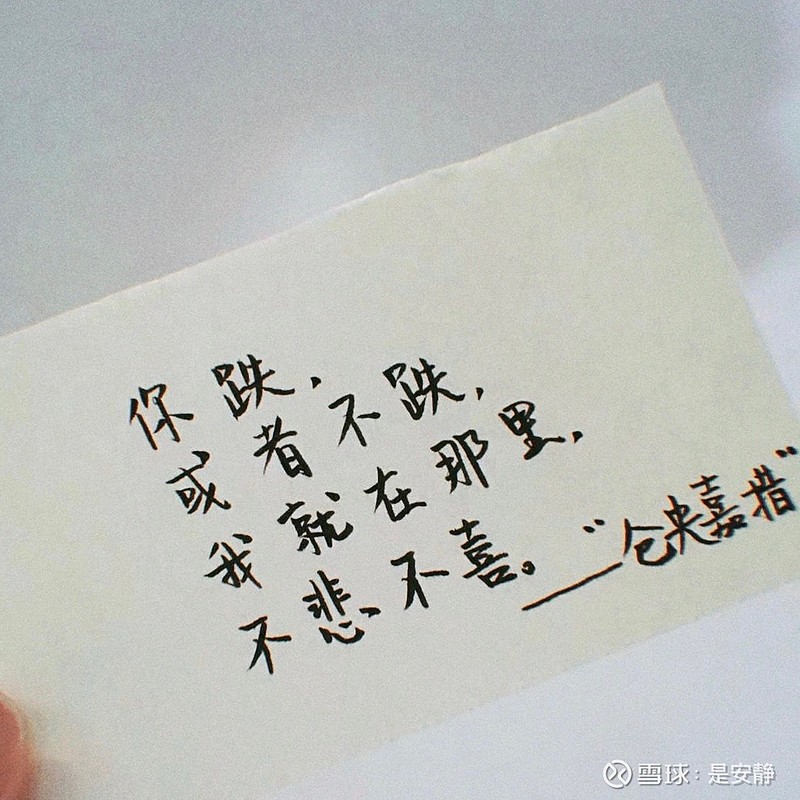 你跌，
或者不跌，
我就在那里，
不悲、不喜。
——“仓央嘉措”
雪球：是安静